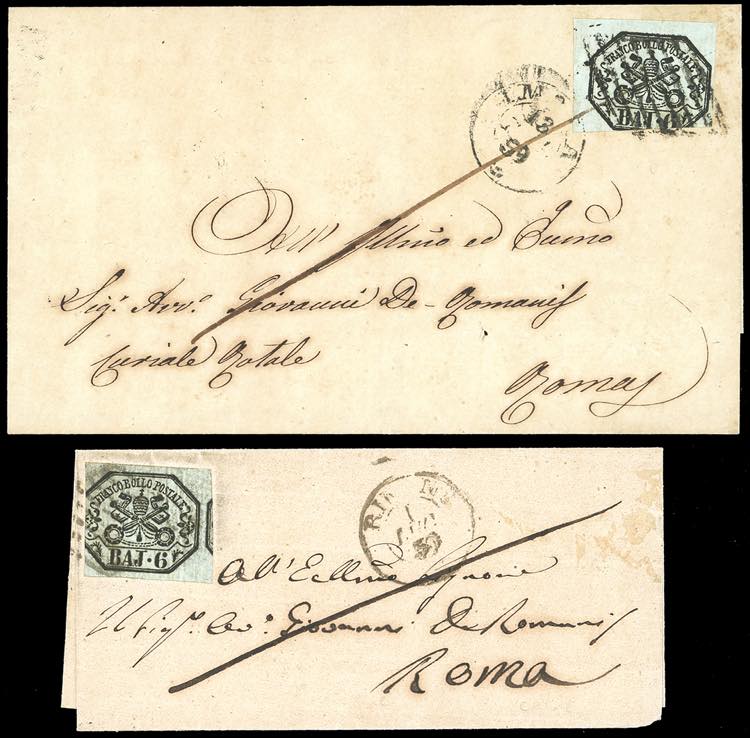 FRANCO BOLLO POSTALE
BAJ.
59
All' Illmo ed
Sigr. Avvo. Giovanni De-Romanis
Curiale Rotale
Roma
FRANCO BOLLO POSTALE
BAJ·6
1
All' Ecllmo Signore
Il Sigr. Avo. Giovanni De Romanis
ROMA